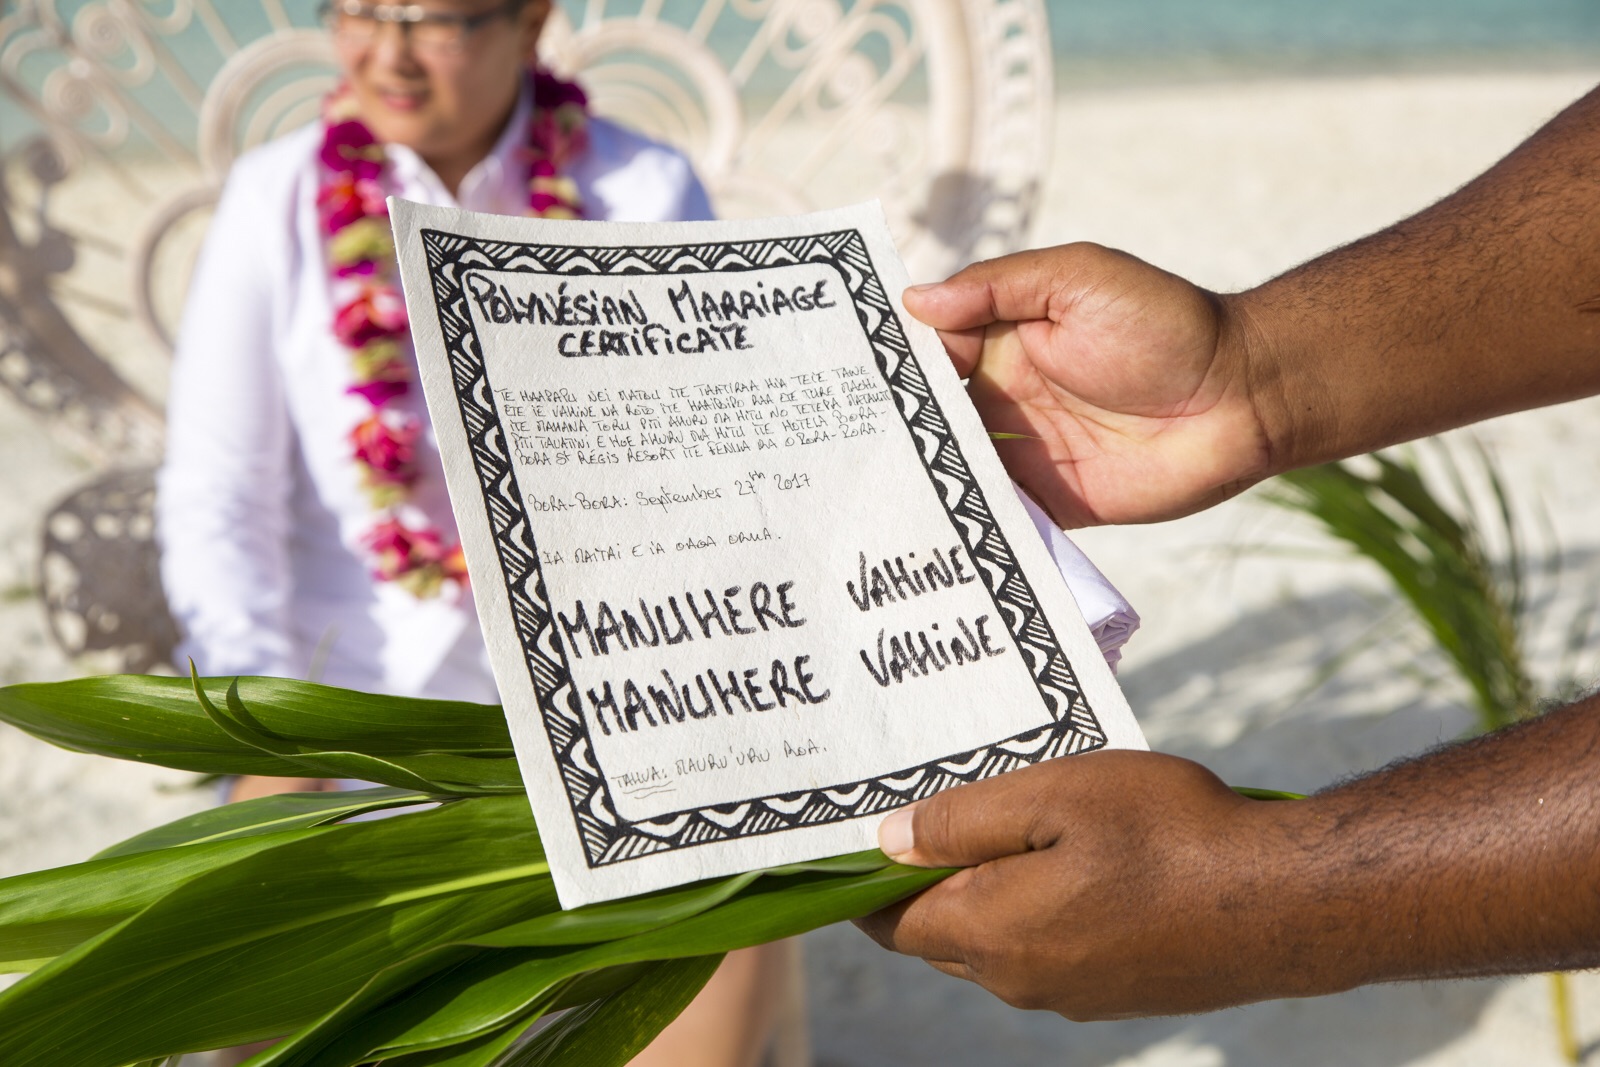 POLYNÉSIAN MARRIAGE
CERTIFICATE
TE HAAPAPU NEI MATOU ITE TAATIRAA HIA TEIE TANE
ETE IE VAHINE NA ROTO ITE HAAIPOIPO RAA ETE TURE MAOHI
ITE MAHANA TORU PITI AHURU MA HITU NO TETEPA MATAHITI
PITI TAUATINI E HOE AHURU MA HITU ITE HOTELA BORA-
BORA St RÉGIS RESORT ITE FENUA RA O BORA-BORA.
BORA-BORA: September 27th 2017
IA MAITAI E IA ORA ORUA.
MANUHERE VAHINE
MANUHERE VAHINE
TAHUA: MAURU'URU ROA.